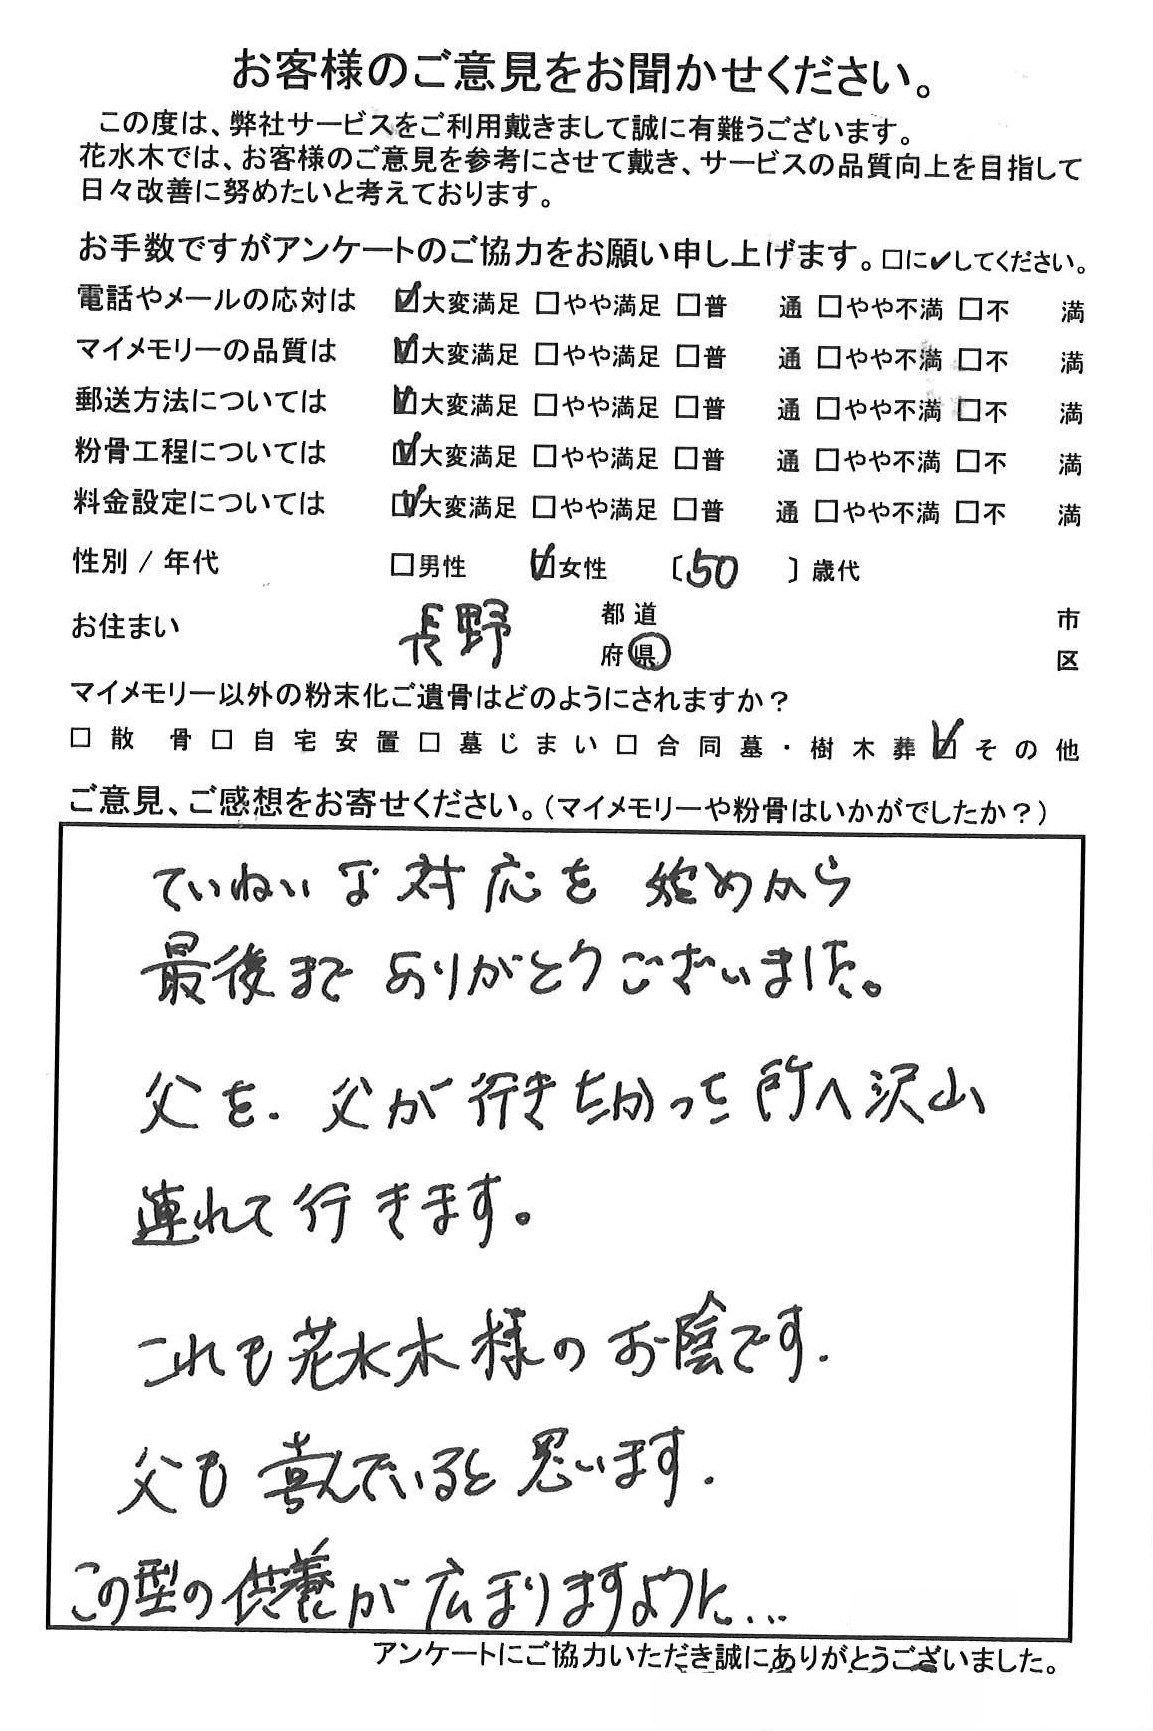 お客様のご意見をお聞かせください。
この度は、弊社サービスをご利用戴きまして誠に有難うございます。
花水木では、お客様のご意見を参考にさせて戴き、サービスの品質向上を目指して
日々改善に努めたいと考えております。
お手数ですがアンケートのご協力をお願い申し上げます。□に✔してください。
電話やメールの応対は ☑大変満足 □やや満足 □普 通 □やや不満 □不 満
マイメモリーの品質は ☑大変満足 □やや満足 □普 通 □やや不満 □不 満
郵送方法については ☑大変満足 □やや満足 □普 通 □やや不満 □不 満
粉骨工程については ☑大変満足 □やや満足 □普 通 □やや不満 □不 満
料金設定については ☑大変満足 □やや満足 □普 通 □やや不満 □不 満
性別 / 年代 □男性 ☑女性 〔50 〕歳代
お住まい 長野 都道府県 市区
マイメモリー以外の粉末化ご遺骨はどのようにされますか？
□ 散 骨 □ 自宅安置 □ 墓じまい □ 合同墓・樹木葬 ☑ その他
ご意見、ご感想をお寄せください。（マイメモリーや粉骨はいかがでしたか？）
ていねいな対応を 始めから
最後まで ありがとうございました。
父を、父が行きたかった所へ沢山
連れて行きます。
これも花水木様のお陰です。
父も喜んでいると思います。
この型の供養が広まりますように…
アンケートにご協力いただき誠にありがとうございました。